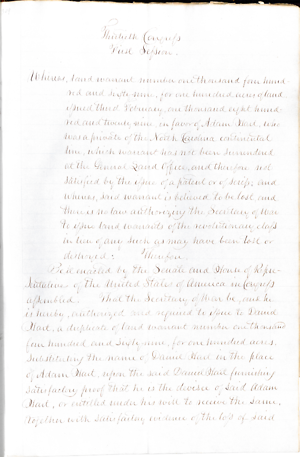 Thirtieth Congress
First Session.
Whereas, land warrant number one thousand four hund
red and sixty-nine, for one hundred acres of land
issued third February, one thousand eight hund-
red and twenty nine in favor of Adam Hail, who
was a private of the North Carolina continental
line, which warrant has not been surrendered
at the General Land Office, and therefore not
satisfied by the issue of a patent or of scrip; and
whereas, said warrant is believed to be lost, and
there is no law authorizing the Secretary of War
to issue land warrants of the revolutionary class
in lieu of any such as may have been lost or
destroyed: Therefore
Be it enacted by the Senate and House of Repre-
sentatives of the United States of America in Congress
assembled. That the Secretary of War be, and he
is hereby authorized and required to issue to
Hail, a duplicate of land warrant number one thousand
four hundred and sixty-nine, for one hundred acres,
substituting the name of Hail in the place
of Adam Hail, upon the said Hail furnishing
satisfactory proof that he is the devisee of said Adam
Hail, or entitled under his will to receive the same,
together with satisfactory evidence of the loss of said